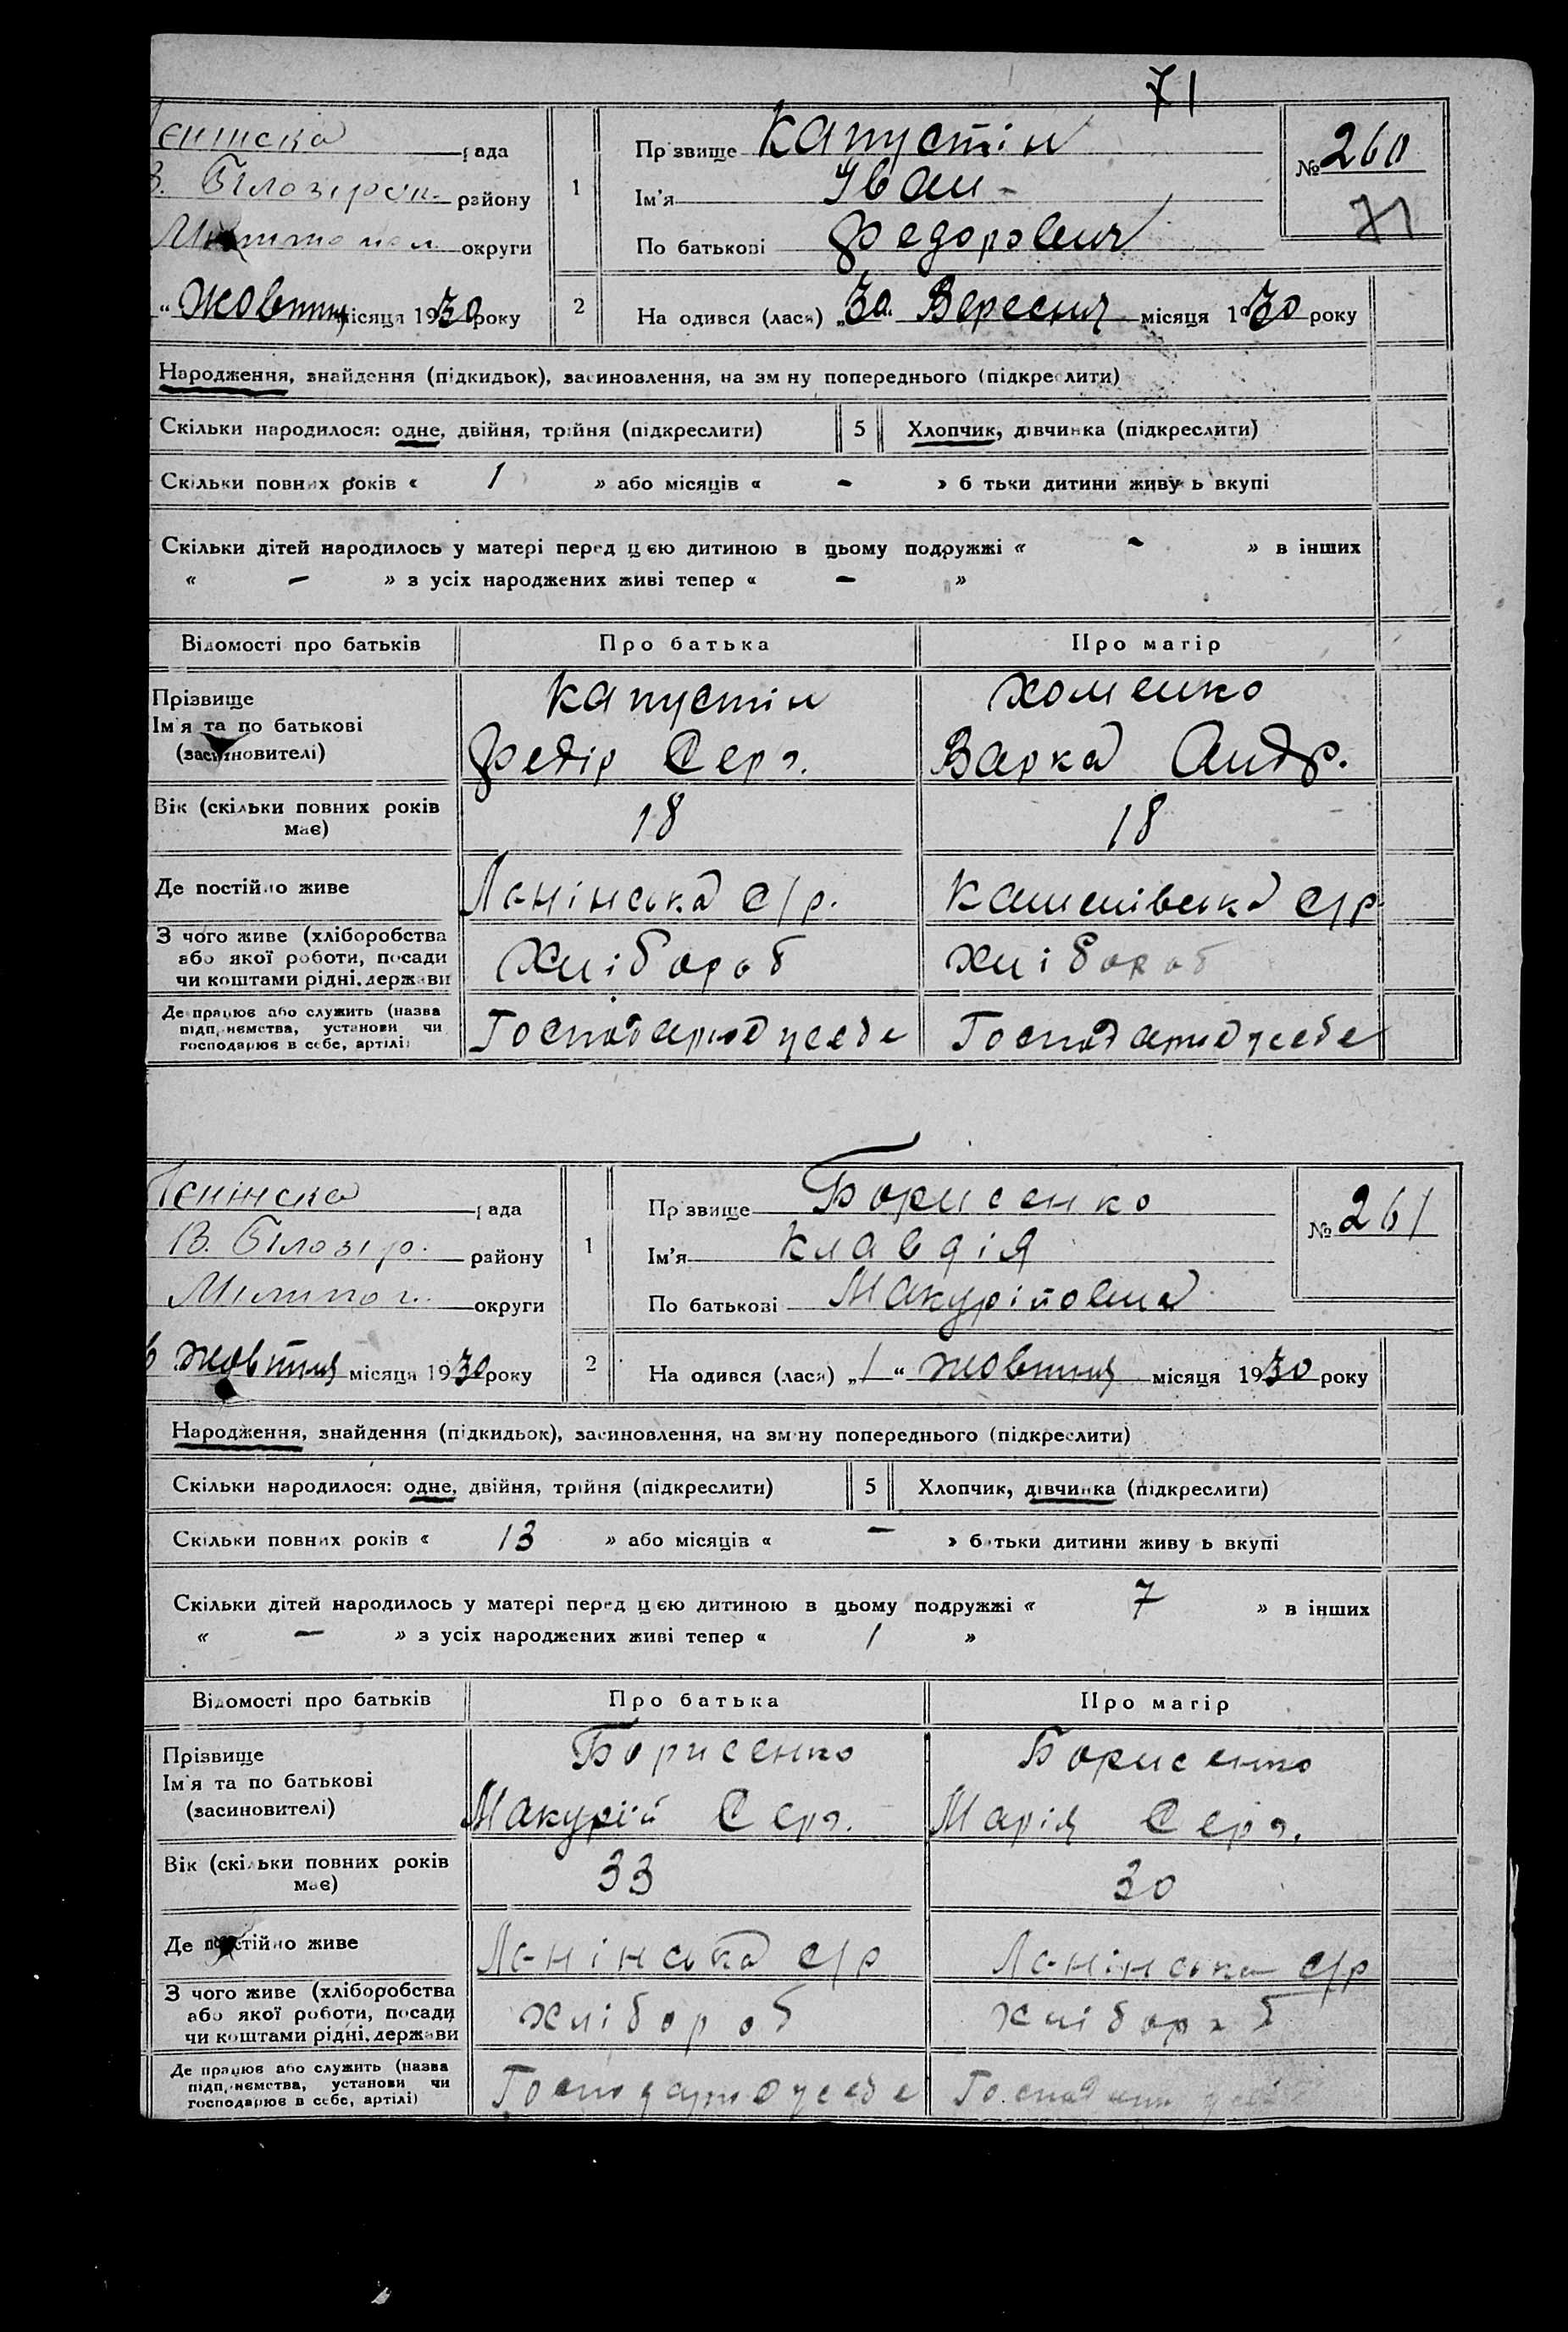 71
Ленінска рада
В. Білозірск. району
округи
" Жовтня місяця 1930 року
1
Прізвище Капустін
Ім'я Іван -
По батькові Федорович
№ 260
71
2
На одився (лася) „30" Вересня місяця 1930 року
Народження, знайдення (підкидьок), засиновлення, на зміну попереднього (підкреслити)
Скільки народилося: одне, двійня, трійня (підкреслити) 5 Хлопчик, дівчинка (підкреслити)
Скільки повних років « 1 » або місяців « - » батьки дитини живуть вкупі
Скільки дітей народилось у матері перед цією дитиною в цьому подружжі « - » в інших
« - » з усіх народжених живі тепер « - »
Відомості про батьків Про батька Про матір
Прізвище
Ім'я та по батькові
(засиновителі)
Капустін
Федір Серг.
Хоменко
Варка Андр.
Вік (скільки повних років має) 18 18
Де постійно живе Ленінська с/р. с/р.
З чого живе (хліборобства
або якої роботи, посади
чи коштами рідні, держави
Хлібороб Хлібороб
Де працює або служить (назва
підприємства, установи чи
господарює в себе, артілі)
Господарює у себе Господарює у себе
Ленінска рада
В. Білозір. району
Мелітоп. округи
6 жовтня місяця 1930 року
1
Прізвище Борисенко
Ім'я Клавдія
По батькові Макуріповна
№ 261
2
На одився (лася) „1" жовтня місяця 1930 року
Народження, знайдення (підкидьок), засиновлення, на зміну попереднього (підкреслити)
Скільки народилося: одне, двійня, трійня (підкреслити) 5 Хлопчик, дівчинка (підкреслити)
Скільки повних років « 13 » або місяців « - » батьки дитини живуть вкупі
Скільки дітей народилось у матері перед цією дитиною в цьому подружжі « 7 » в інших
« - » з усіх народжених живі тепер « 1 »
Відомості про батьків Про батька Про матір
Прізвище
Ім'я та по батькові
(засиновителі)
Борисенко
Макурій Серг.
Борисенко
Марія Серг.
Вік (скільки повних років має) 33 30
Де постійно живе Ленінська с/р Ленінська с/р
З чого живе (хліборобства
або якої роботи, посади
чи коштами рідні, держави
хлібороб хлібороб
Де працює або служить (назва
підприємства, установи чи
господарює в себе, артілі)
Господарює у себе